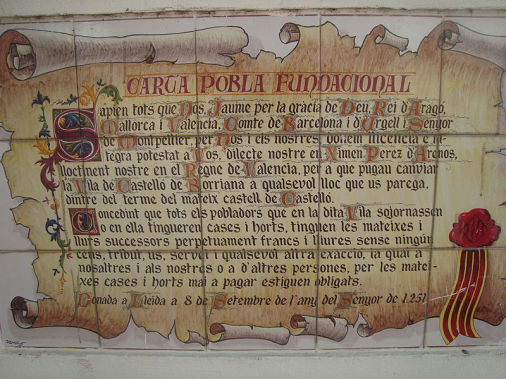 CARTA POBLA FUNDACIONAL
Sapien tots que Nos, Jaume per la gràcia de Deu, Rei d'Aragó,
Mallorca i Valencia, Comte de Barcelona i d'Urgell i Senyor
de Montpeller, per Nos i els nostres, donem llicència e ín-
tegra potestat a Vos, dilecte nostre en Ximen Perez d'Arenos,
lloctinent nostre en el Regne de Valencia, per a que pugau canviar
la Vila de Castelló de Borriana a qualsevol lloc que us parega,
dintre del terme del mateix castell de Castelló.
Concedint que tots els pobladors que en la dita Vila sojornassen
o en ella tingueren cases i horts, tinguen les mateixes i
llurs successors perpetuament francs i lliures sense ningún
cens, tribut, us, servei i qualsevol altra exacció, la qual a
nosaltres i als nostres o a d'altres persones, per les matei-
xes cases i horts mai a pagar estiguen obligats.
Donada a Lleida a 8 de Setembre de l'any del Senyor de 1.251